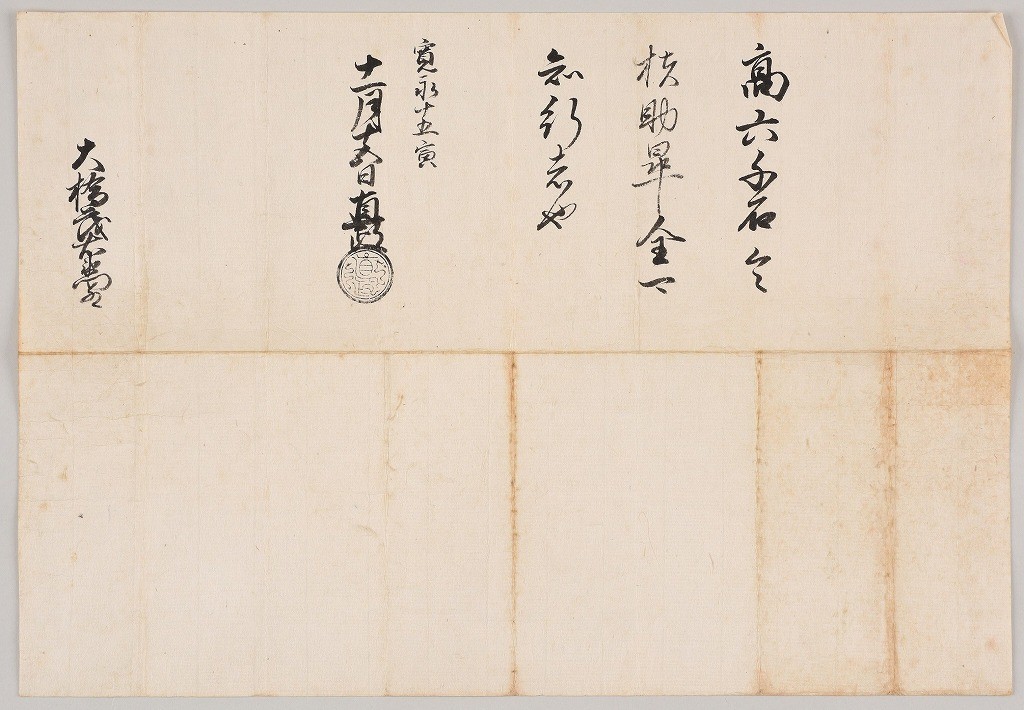 高六千石令
扶助畢全可
知行者也
寛永十五寅
十二月十五日 直政
大橋茂右衛門